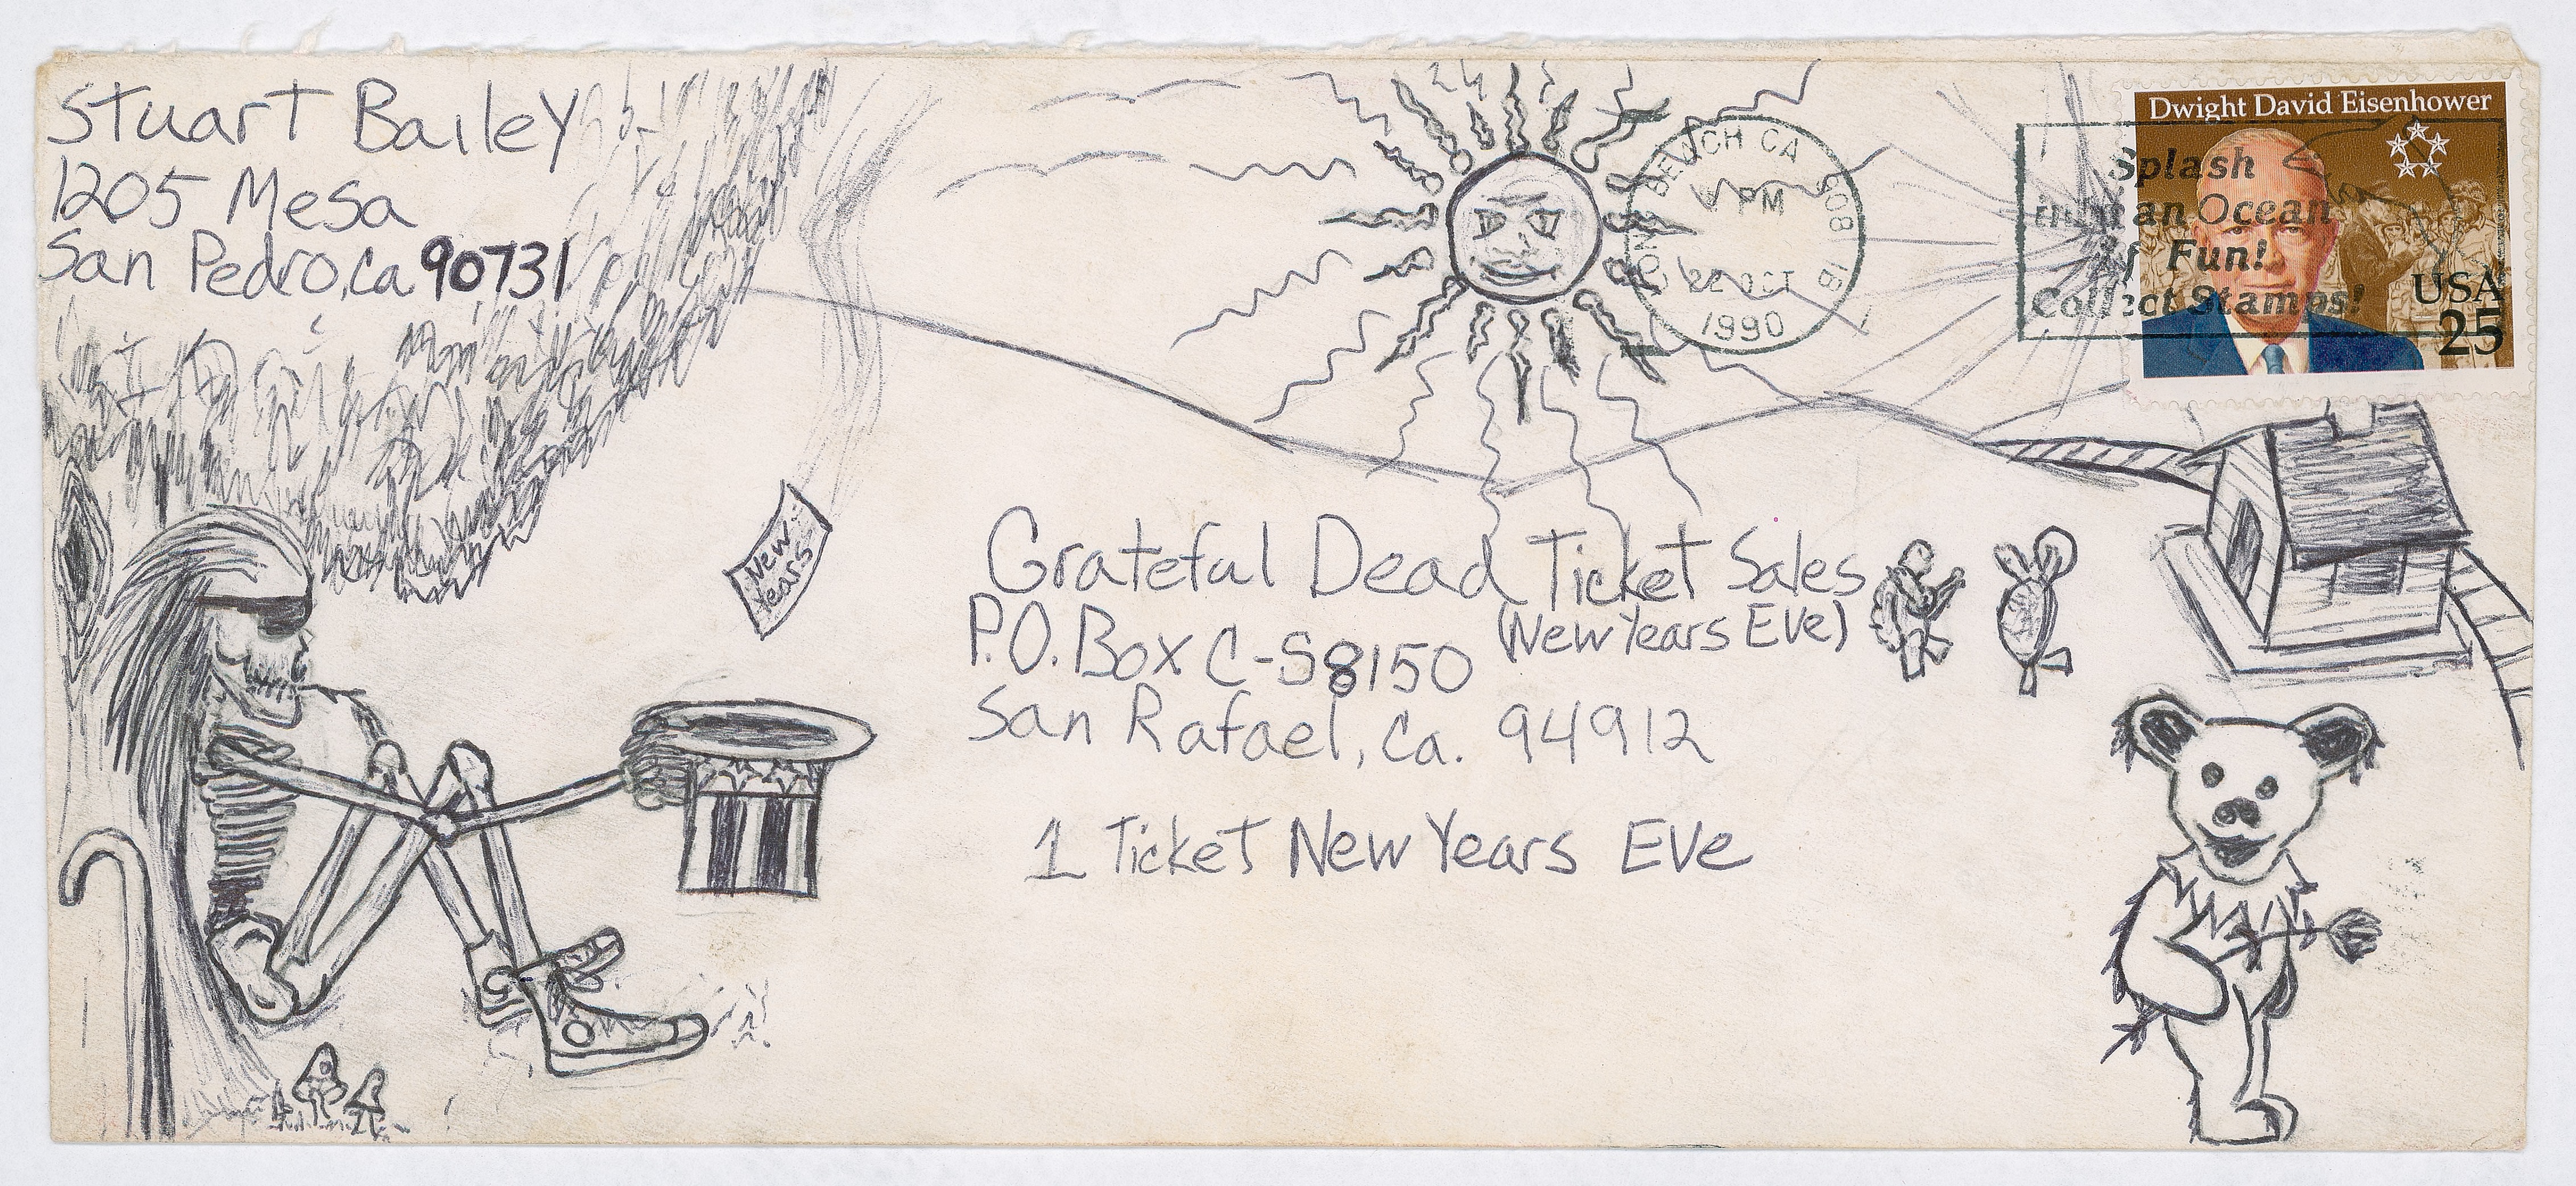 Stuart Bailey
1205 Mesa
San Pedro, Ca 90731
BEACH CA 908
PM
22 OCT
1990
Splash
in an Ocean
of Fun!
Collect Stamps!
Dwight David Eisenhower
USA
25
New
Years
Grateful Dead Ticket Sales
(New Years Eve)
P.O. Box C-S8150
San Rafael, Ca. 94912
1 Ticket New Years Eve